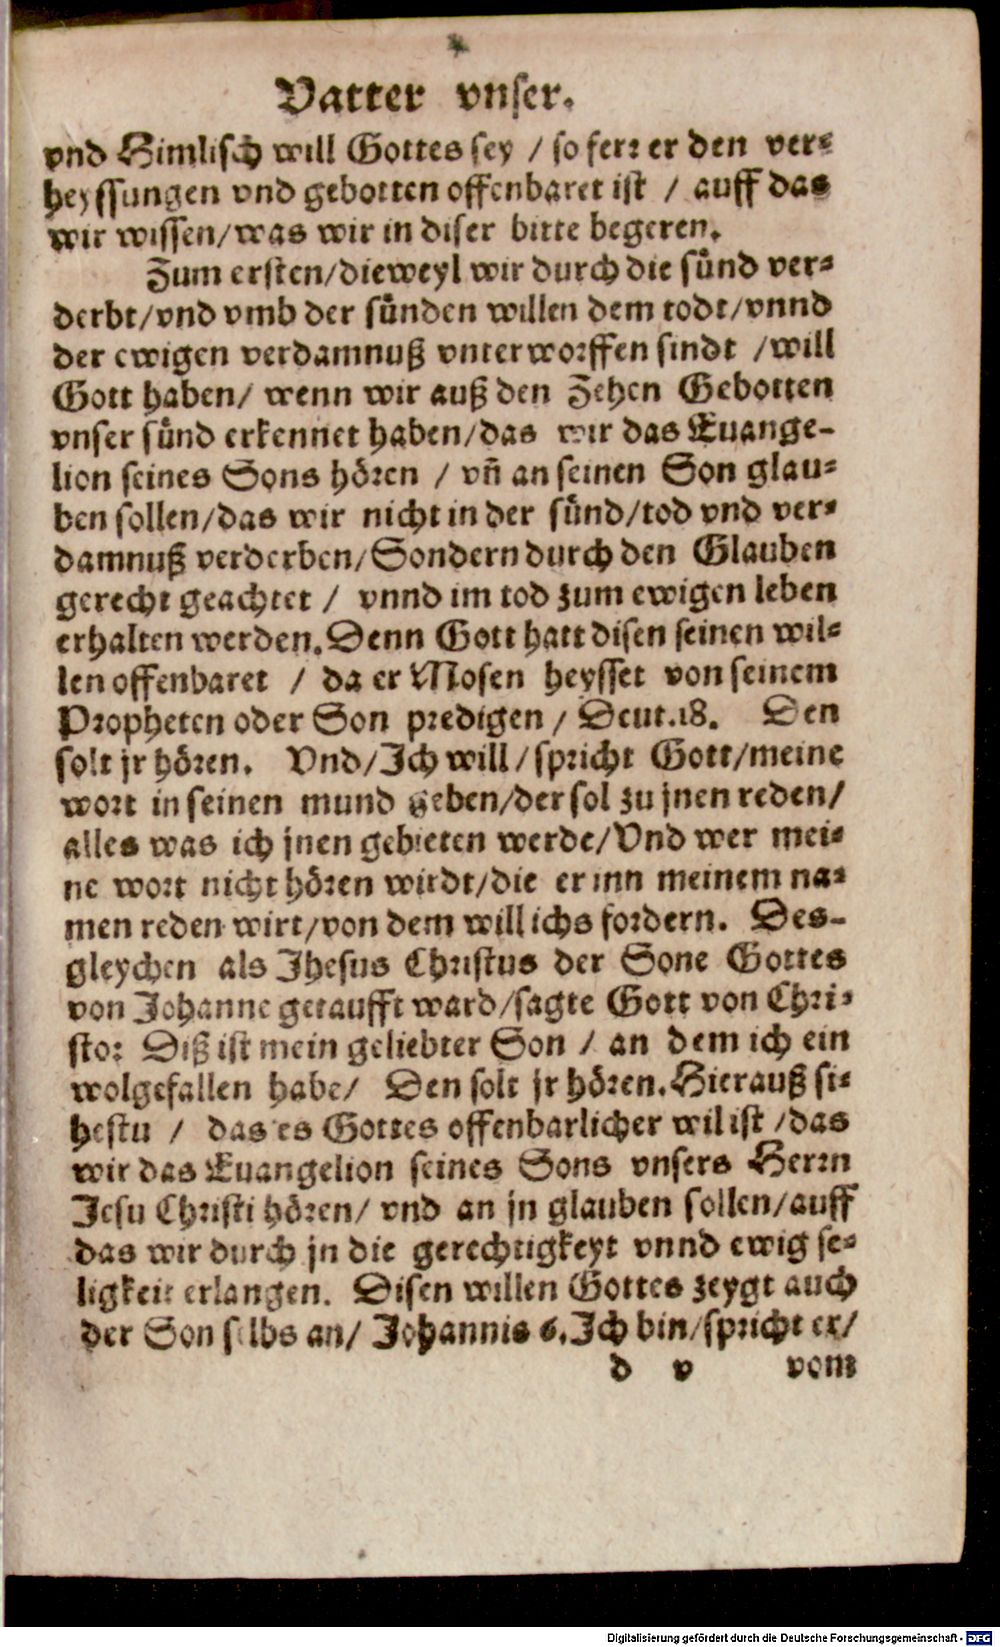 Vatter vnser.
vnd Himlisch will Gottes sey / so ferr er den ver-
heyssungen vnd gebotten offenbaret ist / auff das
wir wissen/was wir in diser bitte begeren.
Zum ersten/dieweyl wir durch die sünd ver-
derbt/vnd vmb der sünden willen dem todt/vnnd
der ewigen verdamnuß vnterworffen sindt /will
Gott haben/ wenn wir auß den Zehen Gebotten
vnser sünd erkennet haben/das wir das Euange-
lion seines Sons hören / vn̄ an seinen Son glau-
ben sollen/das wir nicht in der sünd/tod vnd ver-
damnuß verderben/Sondern durch den Glauben
gerecht geachtet / vnnd im tod zum ewigen leben
erhalten werden. Denn Gott hatt disen seinen wil-
len offenbaret / da er Mosen heysset von seinem
Propheten oder Son predigen / Deut.18. Den
solt jr hören. Vnd/Ich will/spricht Gott/meine
wort in seinen mund geben/der sol zu jnen reden/
alles was ich jnen gebieten werde/Vnd wer mei-
ne wort nicht hören wirdt/die er inn meinem na-
men reden wirt/von dem will ichs fordern. Des-
gleychen als Jhesus Christus der Sone Gottes
von Johanne getaufft ward/sagte Gott von Chri-
sto: Diß ist mein geliebter Son / an dem ich ein
wolgefallen habe/ Den solt jr hören. Hierauß si-
hestu / das es Gottes offenbarlicher wil ist /das
wir das Euangelion seines Sons vnsers Herrn
Jesu Christi hören/ vnd an jn glauben sollen/auff
das wir durch jn die gerechtigkeyt vnnd ewig se-
ligkeit erlangen. Disen willen Gottes zeygt auch
der Son selbs an/ Johannis 6. Ich bin/spricht er/
d v vom
Digitalisierung gefördert durch die Deutsche Forschungsgemeinschaft - DFG